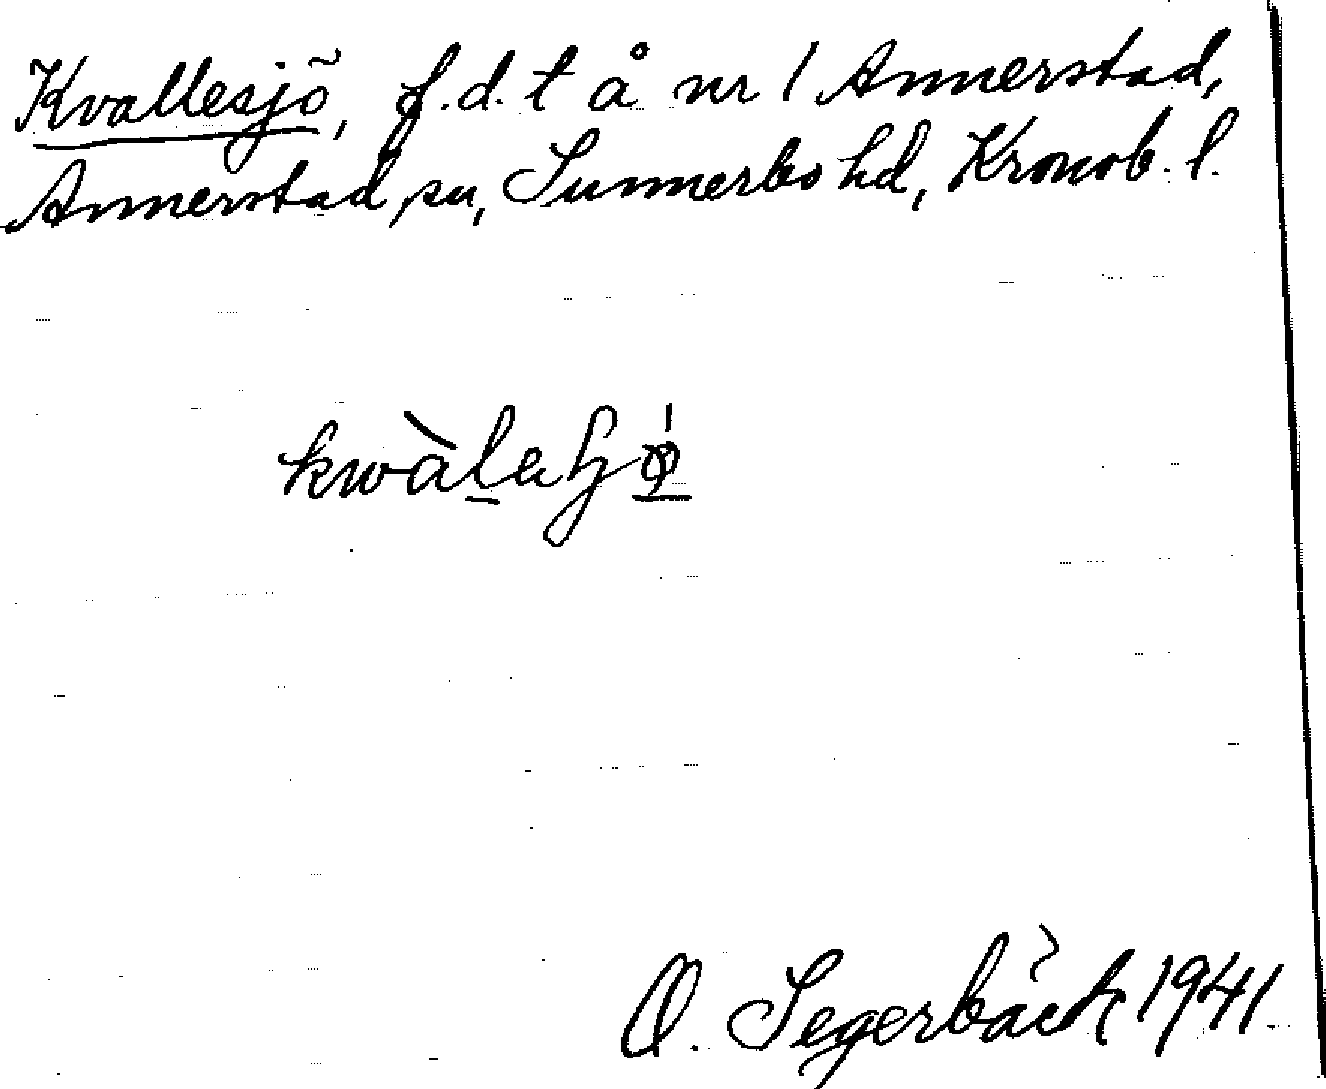 Kvallesjö, f.d. t å nr 1 Annerstad,
Annerstad sn, Sunnerbo hd, Kronob. l.
O. Segerbäck 1941